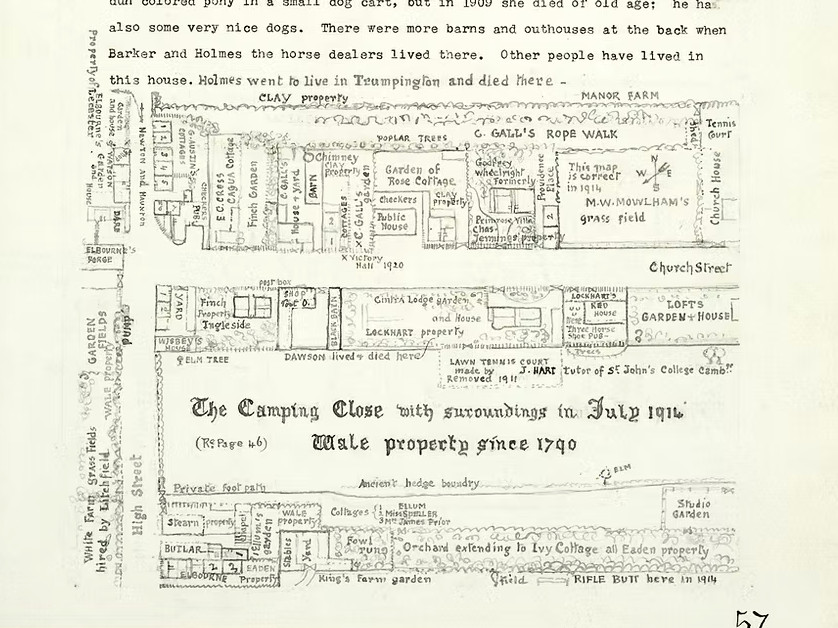 dun colored pony in a small dog cart, but in 1909 she died of old age; he has
also some very nice dogs. There were more barns and outhouses at the back when
Barker and Holmes the horse dealers lived there. Other people have lived in
this house. Holmes went to live in Trumpington and died there -
CLAY property
MANOR FARM
POPLAR TREES
C. GALL'S ROPE WALK
Tennis
Court
Church House
Property of Leicester
ELBOURNE'S
Garden
and house
NEWTON AND HAUXTON
COTTAGES
G. AUSTIN'S
1
2
3
4
5
CHEQUERS
PUB
E. C. CRESS
CAGUA Cottage
Finch GARDEN
C. GALL'S
House + yard
BARN
Chimney
CLAY
Property
COTTAGES
X C. GALL'S
garden
Garden of
Rose Cottage
Checkers
Public
House
CLAY
property
Godfrey
wheelwright
Formerly
Primrose Villa
Chas.
Jennings property
Providence Place
2
This map
is correct
in 1914
N
W
E
S
M.W. MOWLHAM'S
grass field
ELBOURNE'S
FORGE
X Victory
Hall 1920
Church Street
PUMP
YARD
WISBEY'S
HOUSE
Finch
Property
Ingleside
post box
SHOP
BLACK BARN
Cintra Lodge garden
and House
LOCKHART property
LOCKHART'S
RED
HOUSE
Three Horse
Shoe PUB
Trees
LOFTS
GARDEN + HOUSE
ELM TREE
DAWSON lived + died here
LAWN TENNIS COURT
made by J. HART tutor of St John's College Camb.
Removed 1911
The Camping Close with suroundings in July 1914
(Re Page 46)
Wale property since 1790
GARDEN
FIELDS
WALE Property
White Farm Grass Fields
hired by Litchfield
High Street
ELM
Private foot path
Ancient hedge boundry
Studio
Garden
Stearn
property
Chapel
Ellum's
garden
WALE
property
Cottages
1 ELLUM
2 Miss SPELLER
3 Mrs James Prior
BUTLAR
ELBOURNE
EADEN
Property
Stables
Yard
Fowl
runs
Orchard extending to Ivy Cottage all Eaden property
King's Farm garden
field
RIFLE BUTT here in 1914
57